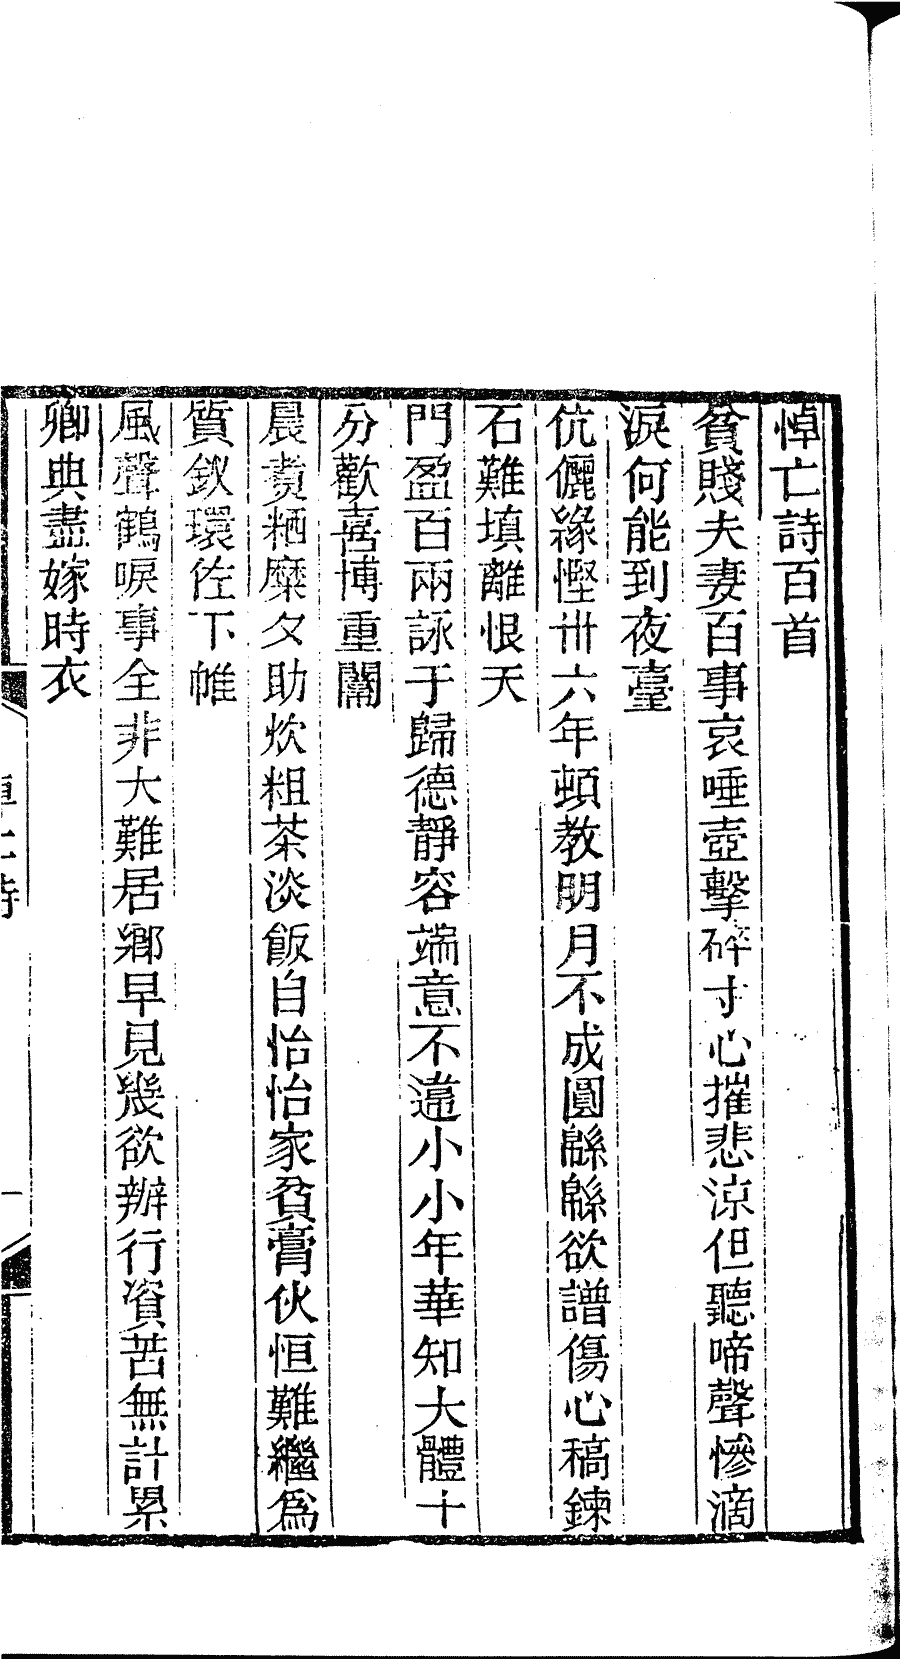 悼亡詩百首
貧賤夫妻百事哀唾壺擊碎寸心摧悲涼但聽啼聲慘滴
淚何能到夜臺
伉儷緣慳卅六年頓教明月不成圓緜緜欲譜傷心稿鍊
石難填離恨天
門盈百兩詠于歸德靜容端意不違小小年華知大體十
分歡喜博重闈
晨煑粞糜夕助炊粗茶淡飯自怡怡家貧膏伙恒難繼爲
質釵環佐下帷
風聲鶴唳事全非大難居鄉早見幾欲辦行資苦無計累
卿典盡嫁時衣
悼亡詩
一